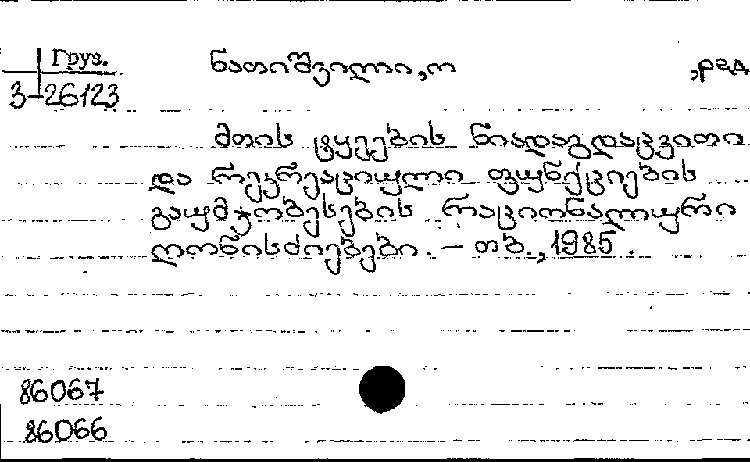 Груз.
3-26123
ნათიშვილი, ო ,ред
მთის ტყეების ნიადაგდაცვითი
და რეკრეაციული ფუნქციების
გაუმჯობესების რაციონალური
ღონისძიებები. – თბ., 1985.
86067
86066